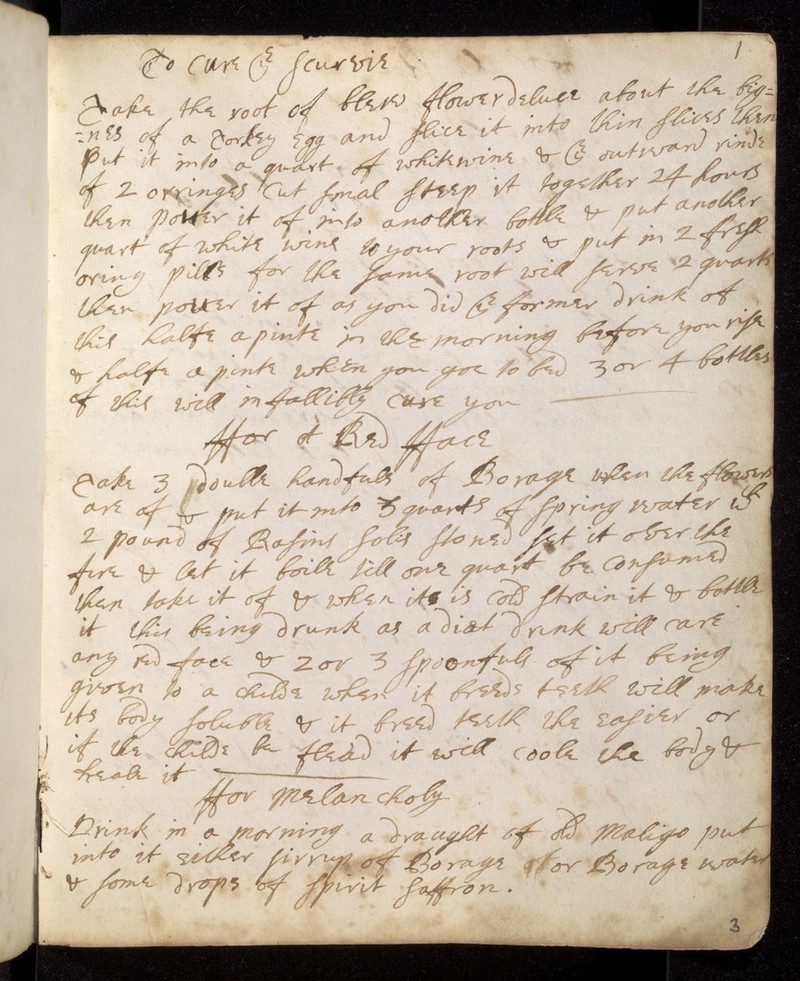 1
To Cure ye Scurvie
Take the root of blew flowerdeluce about the big=
=nes of a Torkey Egg and slice it into thin slices then
put it into a quart of whitewine & ye outward rinde
of 2 orringes Cut smal steep it together 24 hours
then power it of into another bottle & put another
quart of white wine to your roots & put in 2 fresh
oring pills for the same root will serve 2 quarts
then power it of as you did ye former drink of
this halfe a pinte in the morning before you rise
& halfe a pinte when you goe to bed 3 or 4 bottles
of this will infallibly cure you
ffor a Red fface
Take 3 double handfuls of Borage when the flowers
are of & put it into 3 quarts of spring water wth
2 pound of Rasins solis stoned set it over the
fire & let it boile till one quart be Consumed
then take it of & when it is cold strain it & bottle
it this being drunk as a diat drink will care
any red face & 2 or 3 spoonfuls of it being
given to a childe when it breeds teeth will make
its body soluble & it breed teeth the easier or
if the childe be flead it will coole the body &
heale it
ffor Melancholy
Drink in a morning a draught of old Maligo put
into it either sirrup of Borage or Borage water
& some drops of spirit saffron.
3